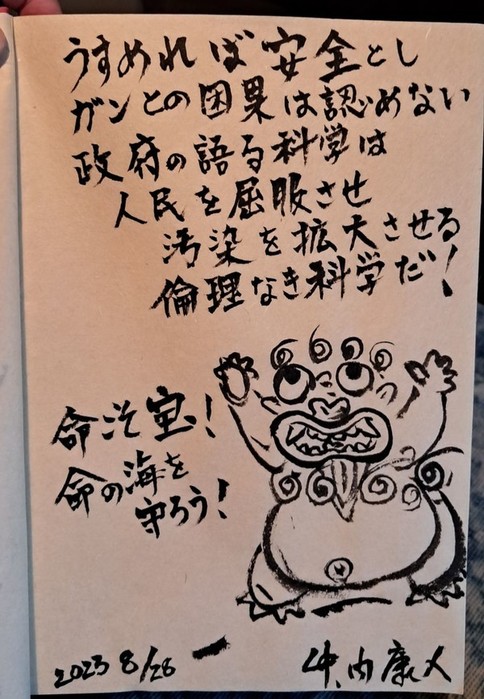 うすめれば安全とし
ガンとの因果は認めない
政府の語る科学は
人民を屈服させ
汚染を拡大させる
倫理なき科学だ!
命こそ宝!
命の海を
守ろう!
2023 8/28
内康人